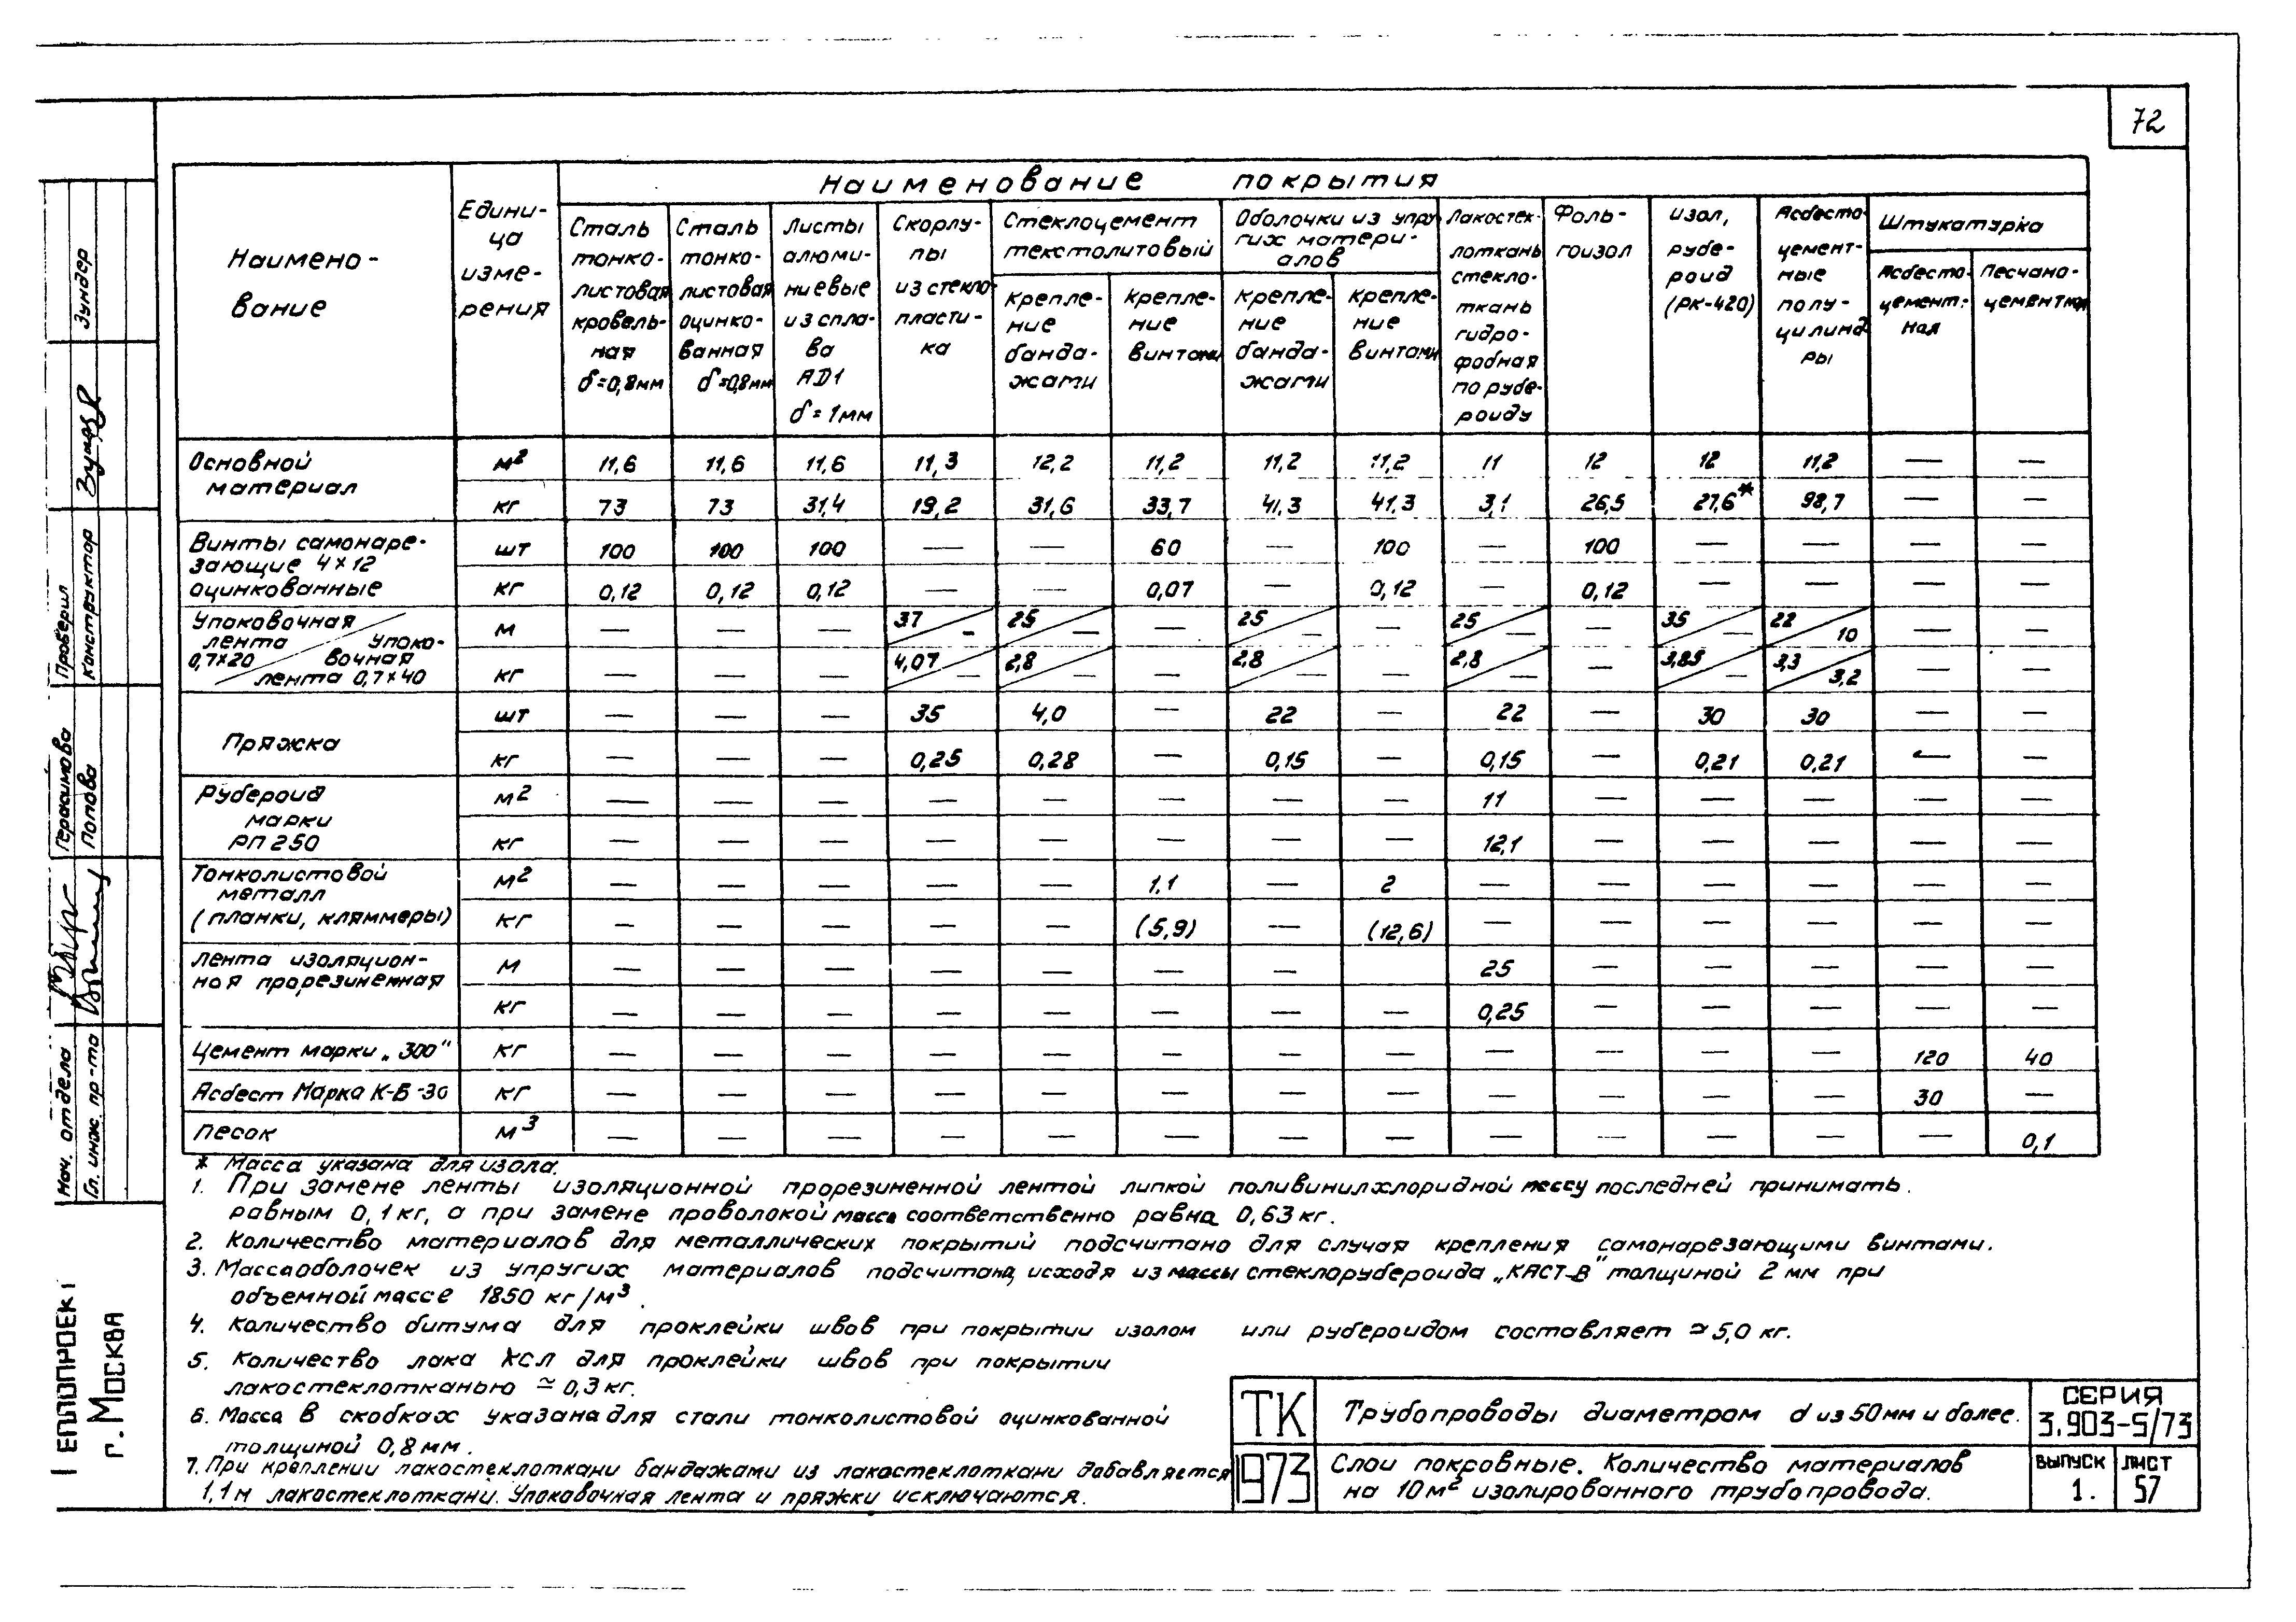 72
Наименование покрытия
Наимено-
вание
Едини-
ца
изме-
рения
Сталь
тонко-
листовая
кровель-
ная
δ=0,8мм
Сталь
тонко-
листовая
оцинко-
ванная
δ=0,8мм
Листы
алюми-
ниевые
из спла-
ва
АД1
δ=1мм
Скорлу-
пы
из стекло-
пласти-
ка
Стеклоцемент
текстолитовый
Крепле-
ние
банда-
жами
Крепле-
ние
винтами
Оболочки из упру
гих матери-
алов
Крепле-
ние
банда-
жами
Крепле-
ние
винтами
Лакостек-
лоткань
стекло-
ткань
гидро-
фобная
по рубе-
роиду
Фоль-
гоизол
Изол,
рубе-
роид
(РК-420)
Асбесто-
цемент-
ные
полу-
цилинд
ры
Штукатурка
Асбесто-
цемент-
ная
Песчано-
цементная
Основной
материал
м² 11,6 11,6 11,6 11,3 12,2 11,2 11,2 11,2 11 12 12 11,2 — —
кг 73 73 31,4 19,2 31,6 33,7 41,3 41,3 3,1 26,5 27,6* 98,7 — —
Винты самонаре-
зающие 4×12
оцинкованные
шт 100 100 100 — — 60 — 100 — 100 — — — —
кг 0,12 0,12 0,12 — — 0,07 — 0,12 — 0,12 — — — —
Упаковочная
лента
0,7×20
Упако-
вочная
лента 0,7×40
м — — — 37/— 25/— — 25/— — 25/— — 35/— 22/10 — —
кг — — — 4,07/— 2,8/— — 2,8/— — 2,8/— — 3,85/— 3,3/3,2 — —
Пряжка
шт — — — 35 4,0 — 22 — 22 — 30 30 — —
кг — — — 0,25 0,28 — 0,15 — 0,15 — 0,21 0,21 — —
Рубероид
марки
РП 250
м² — — — — — — — — 11 — — — — —
кг — — — — — — — — 12,1 — — — — —
Тонколистовой
металл
(планки, кляммеры)
м² — — — — — 1,1 — 2 — — — — — —
кг — — — — — (5,9) — (12,6) — — — — — —
Лента изоляцион-
ная прорезиненная
м — — — — — — — — 25 — — — — —
кг — — — — — — — — 0,25 — — — — —
Цемент марки „300" кг — — — — — — — — — — — — 120 40
Асбест Марка К-Б-30 кг — — — — — — — — — — — — 30 —
Песок м³ — — — — — — — — — — — — — 0,1
* Масса указана для изола.
1. При замене ленты изоляционной прорезиненной лентой липкой поливинилхлоридной массу последней принимать
равным 0,1кг, а при замене проволокой масса соответственно равна 0,63кг.
2. Количество материалов для металлических покрытий подсчитано для случая крепления самонарезающими винтами.
3. Масса оболочек из упругих материалов подсчитана исходя из массы стеклорубероида „КАСТ-В" толщиной 2 мм при
объемной массе 1850 кг/м³.
4. Количество битума для проклейки швов при покрытии изолом или рубероидом составляет ≃5,0 кг.
5. Количество лака ХСЛ для проклейки швов при покрытии
лакостеклотканью ≃ 0,3кг.
6. Масса в скобках указана для стали тонколистовой оцинкованной
толщиной 0,8мм.
7. При креплении лакостеклоткани бандажами из лакостеклоткани добавляется
1,1м лакостеклоткани. Упаковочная лента и пряжки исключаются.
ТК
1973
Трубопроводы диаметром d из 50мм и более.
Слои покровные. Количество материалов
на 10м² изолированного трубопровода.
СЕРИЯ
3.903-5/73
ВЫПУСК
1.
ЛИСТ
57
Нач. отдела
Гл. инж. пр-та
Герасимова
Попова
Проверил
Конструктор
Зундер
ЕПЛОПРОЕК
г. Москва